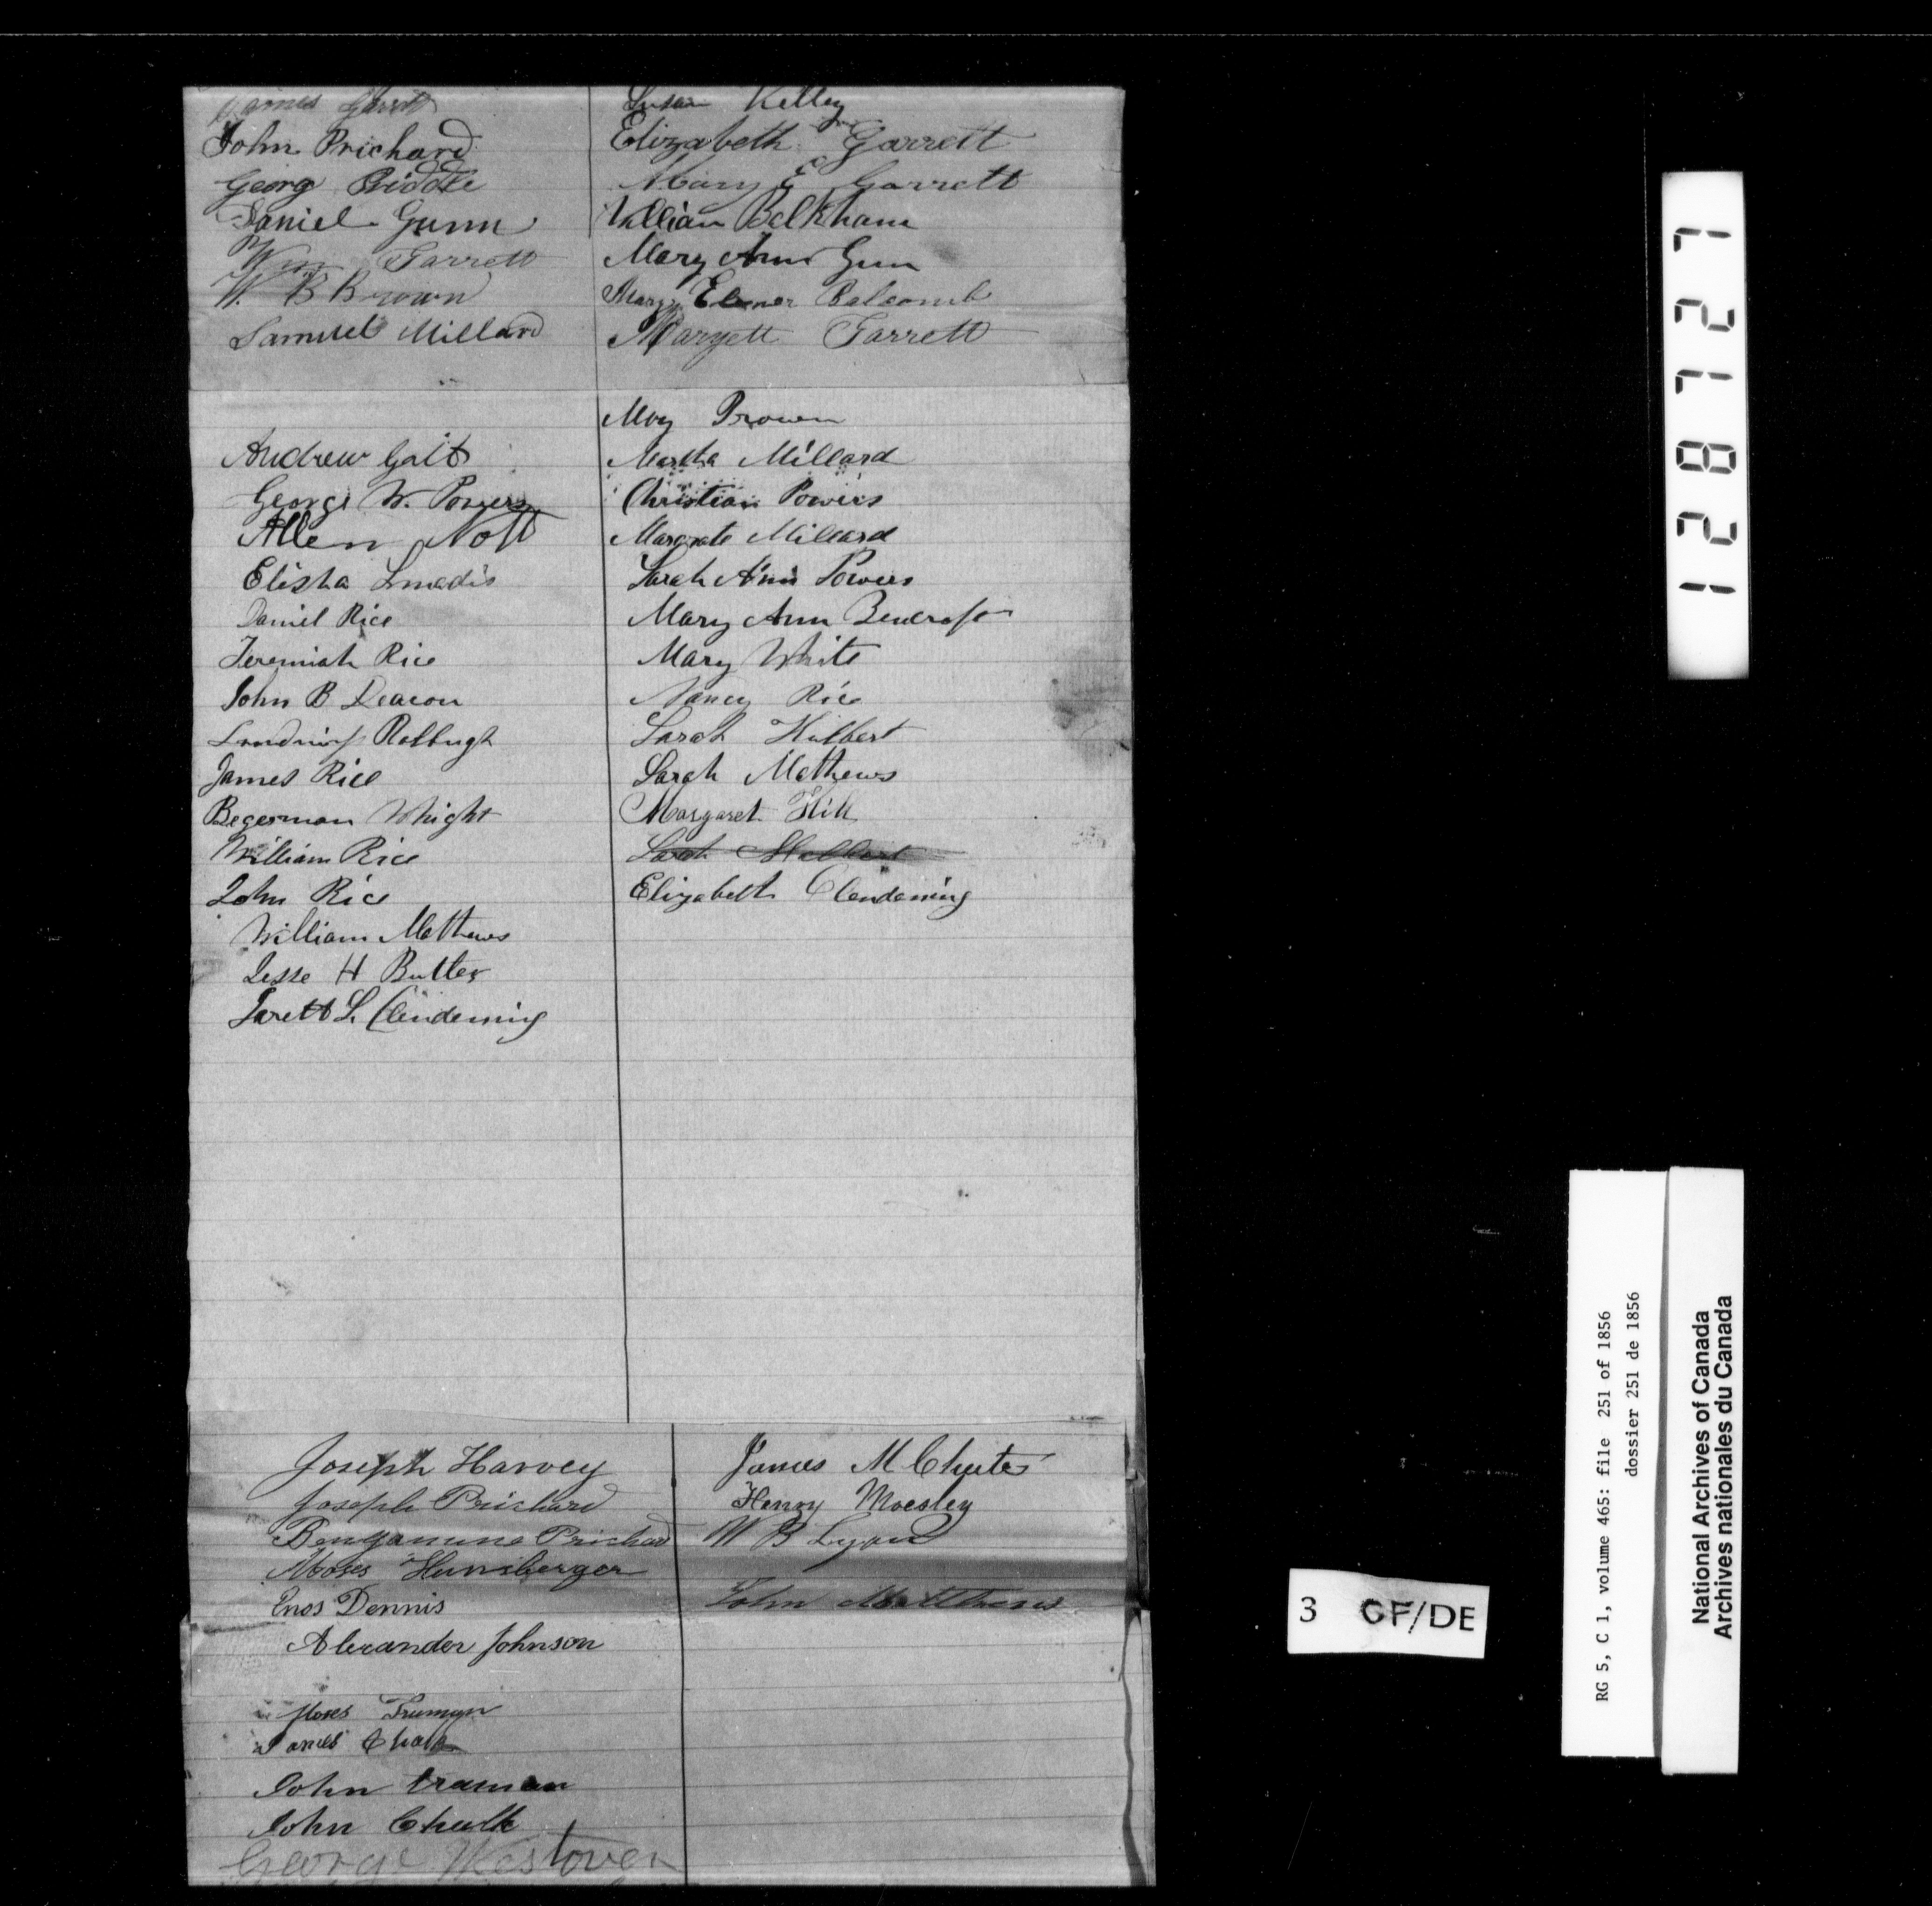 James Garrett
John Prichard
Georg Riddle
Daniel Gunn
Wm Garrett
W. B Brown
Samuel Millard
Susan Kelley
Elizabeth Garrett
Mary E Garrett
William Belkham
Mary Ann Gun
Mary Elener Balcomb
Margett Garrett
Andrew Galt
George W. Powers
Allen Nott
Elisha
Daniel Rice
Jeremiah Rice
John B Deacon
James Rice
Begerman Whight
William Rice
John Rice
William Mathews
Jesse H Butler
Jarett L. Clendening
Mary Brown
Martha Millard
Christian Powers
Margrate Millard
Sarah Ann Powers
Mary Ann
Mary White
Nancy Rice
Sarah Hulbert
Sarah Mathews
Margaret Hill
Sarah
Elizabeth Clendening
Joseph Harvey
Joseph Prichard
Benjamine Prichard
Moses Hunsberger
Enos Dennis
Alexander Johnson
Moses Truman
James Chalk
John truman
John Chalk
George Westover
James M Chute
Henry Moesley
W B Lyon
John Matthews
128727
3 GF/DE
RG 5, C 1, volume 465: file 251 of 1856
dossier 251 de 1856
National Archives of Canada
Archives nationales du Canada